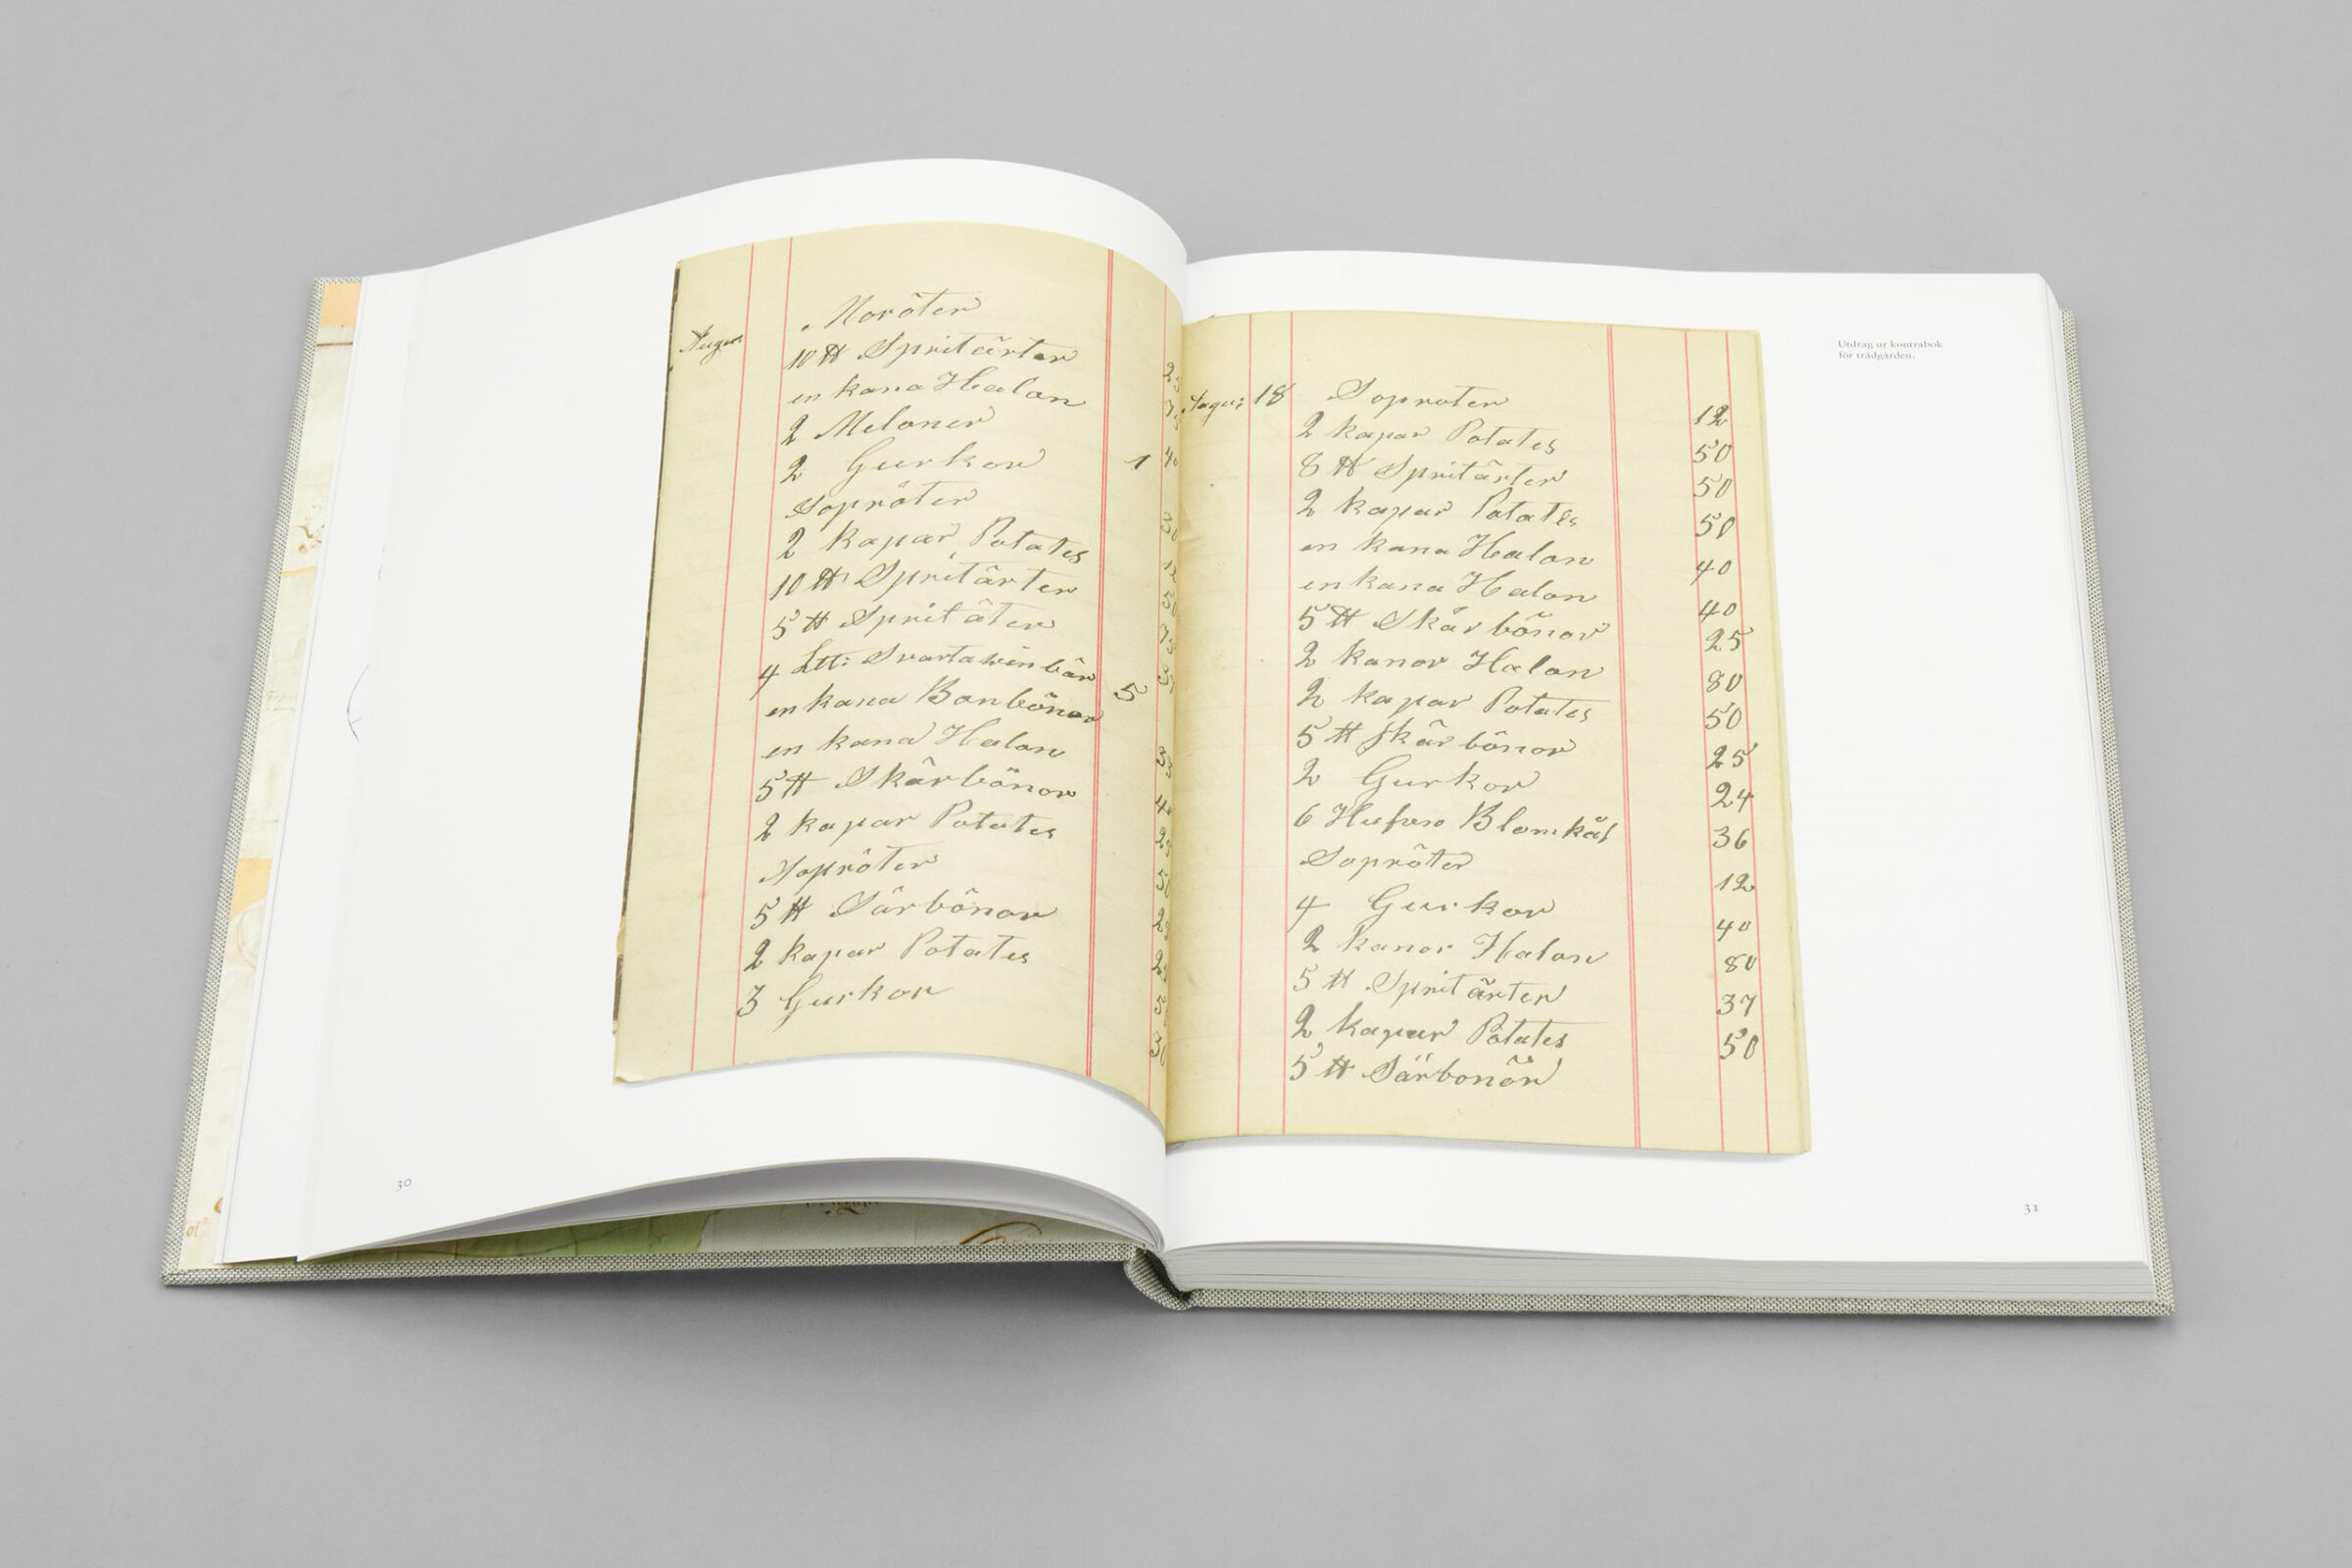 Morôter
Augu:
10 ℔ Spritärter
en kana Halon
2 Meloner
2 Gurkor 1 40
Soprôter
2 kapar Potates
10 ℔ Spritârter
5 ℔ Spritâter
4 Litt: Svartawinbär 5
en kana Bonbônor
en kana Halon
5 ℔ Skârbönor
2 kapar Potates
Soprôter
5 ℔ Sârbônor
2 kapar Potates
3 Gurkor
30
Augu: 18 Soproter 12
2 kapar Potates 50
8 ℔ Spritârter 50
2 kapar Potates 50
en kana Halon 40
en kana Halon 40
5 ℔ Skárbönor 25
2 kanor Halon 80
2 kapar Potates 50
5 ℔ skârbônor 25
2 Gurkor 24
6 Blomkål 36
Soprôter 12
4 Gurkor 40
2 kanor Halon 80
5 ℔ Spritärter 37
2 kapar Potates 50
5 ℔ Särbonör
Utdrag ur kontrabok
för trädgården.
31